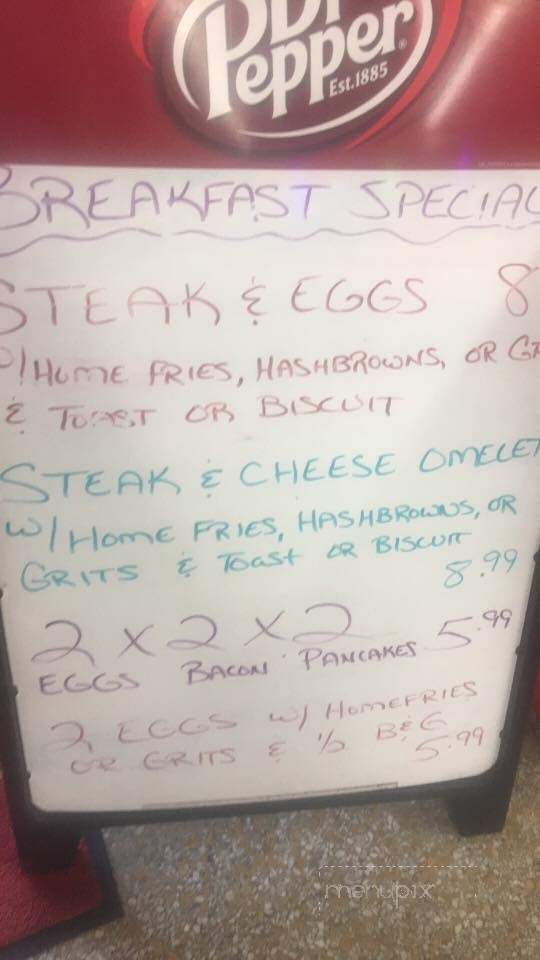 Dr Pepper
Est.1885
BREAKFAST SPECIAL
STEAK & EGGS 8
W/ HOME FRIES, HASHBROWNS, OR GR
& TOAST OR BISCUIT
STEAK & CHEESE OMELET
W/ HOME FRIES, HASHBROWNS, OR
GRITS & TOAST OR BISCUIT
8.99
2 X 2 X 2 5.99
EGGS BACON PANCAKES
2 EGGS W/ HOMEFRIES
OR GRITS & 1/2 B&G
5.99
menupix